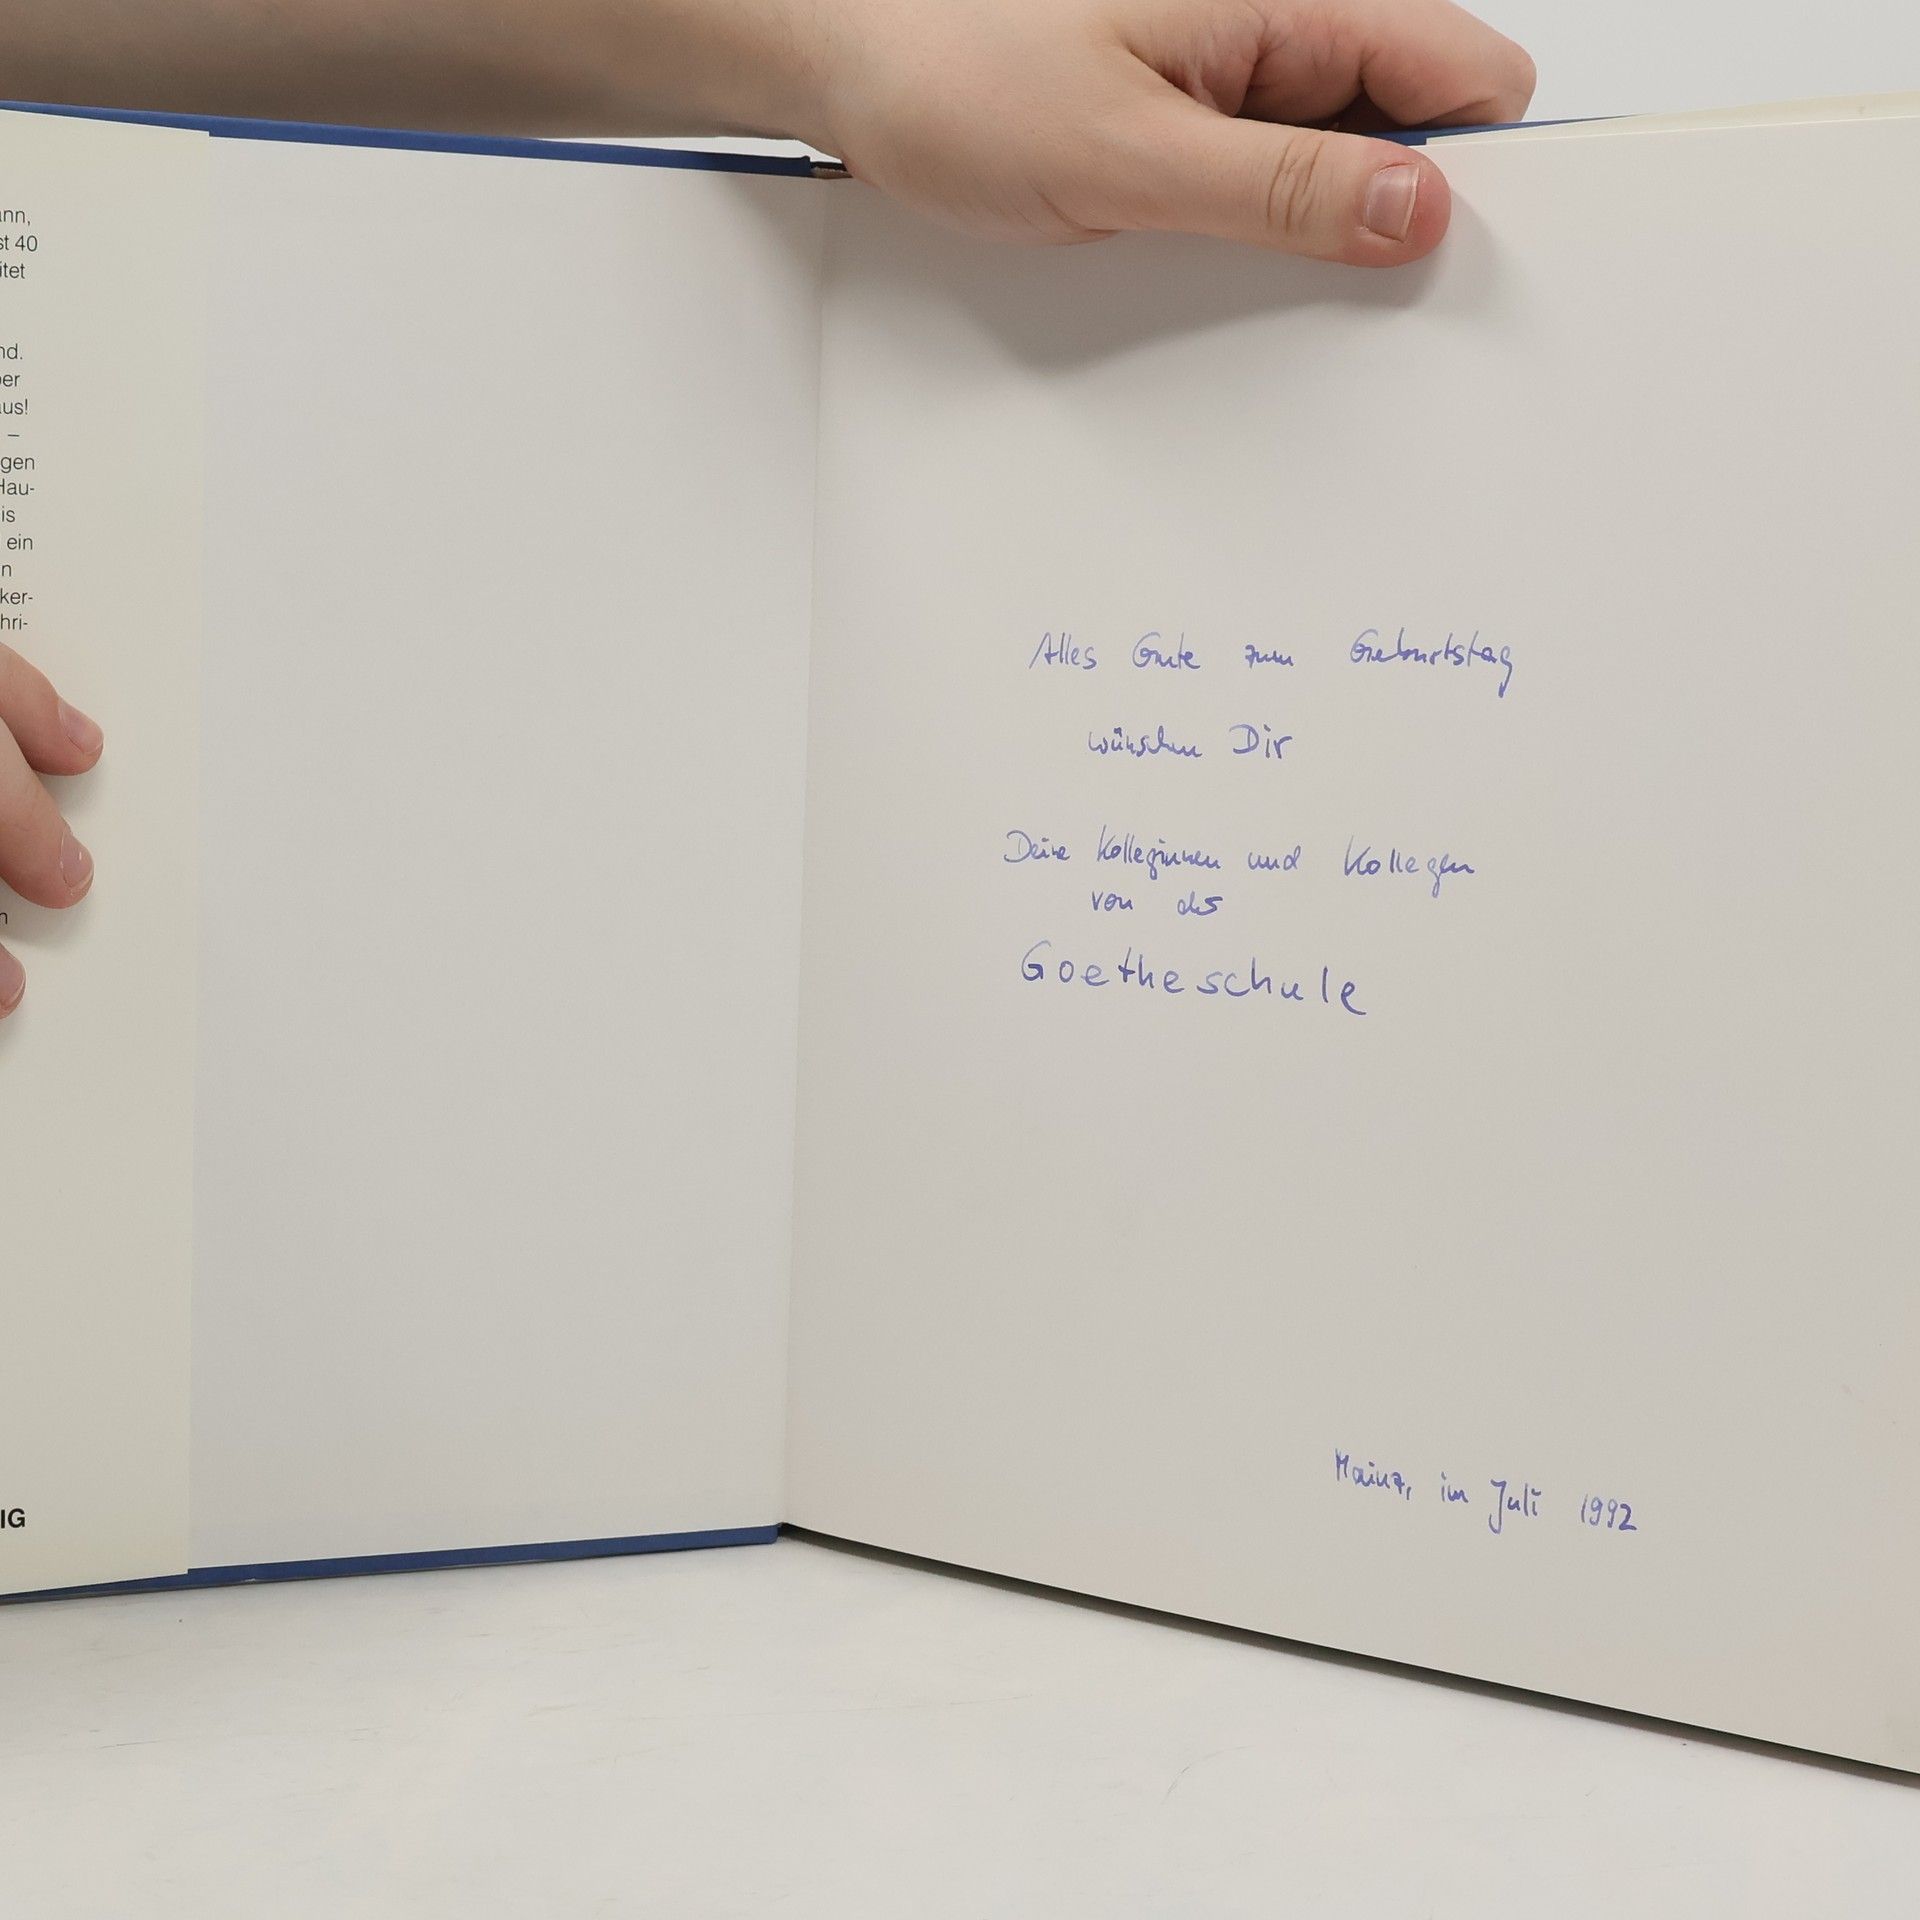 st 40
aus!
–
gen
Hau-
is
ein
n
ker-
hri-
IG
Alles Gute zum Geburtstag
wünschen Dir
Deine Kolleginnen und Kollegen
von der
Goetheschule
Mainz, im Juli 1992